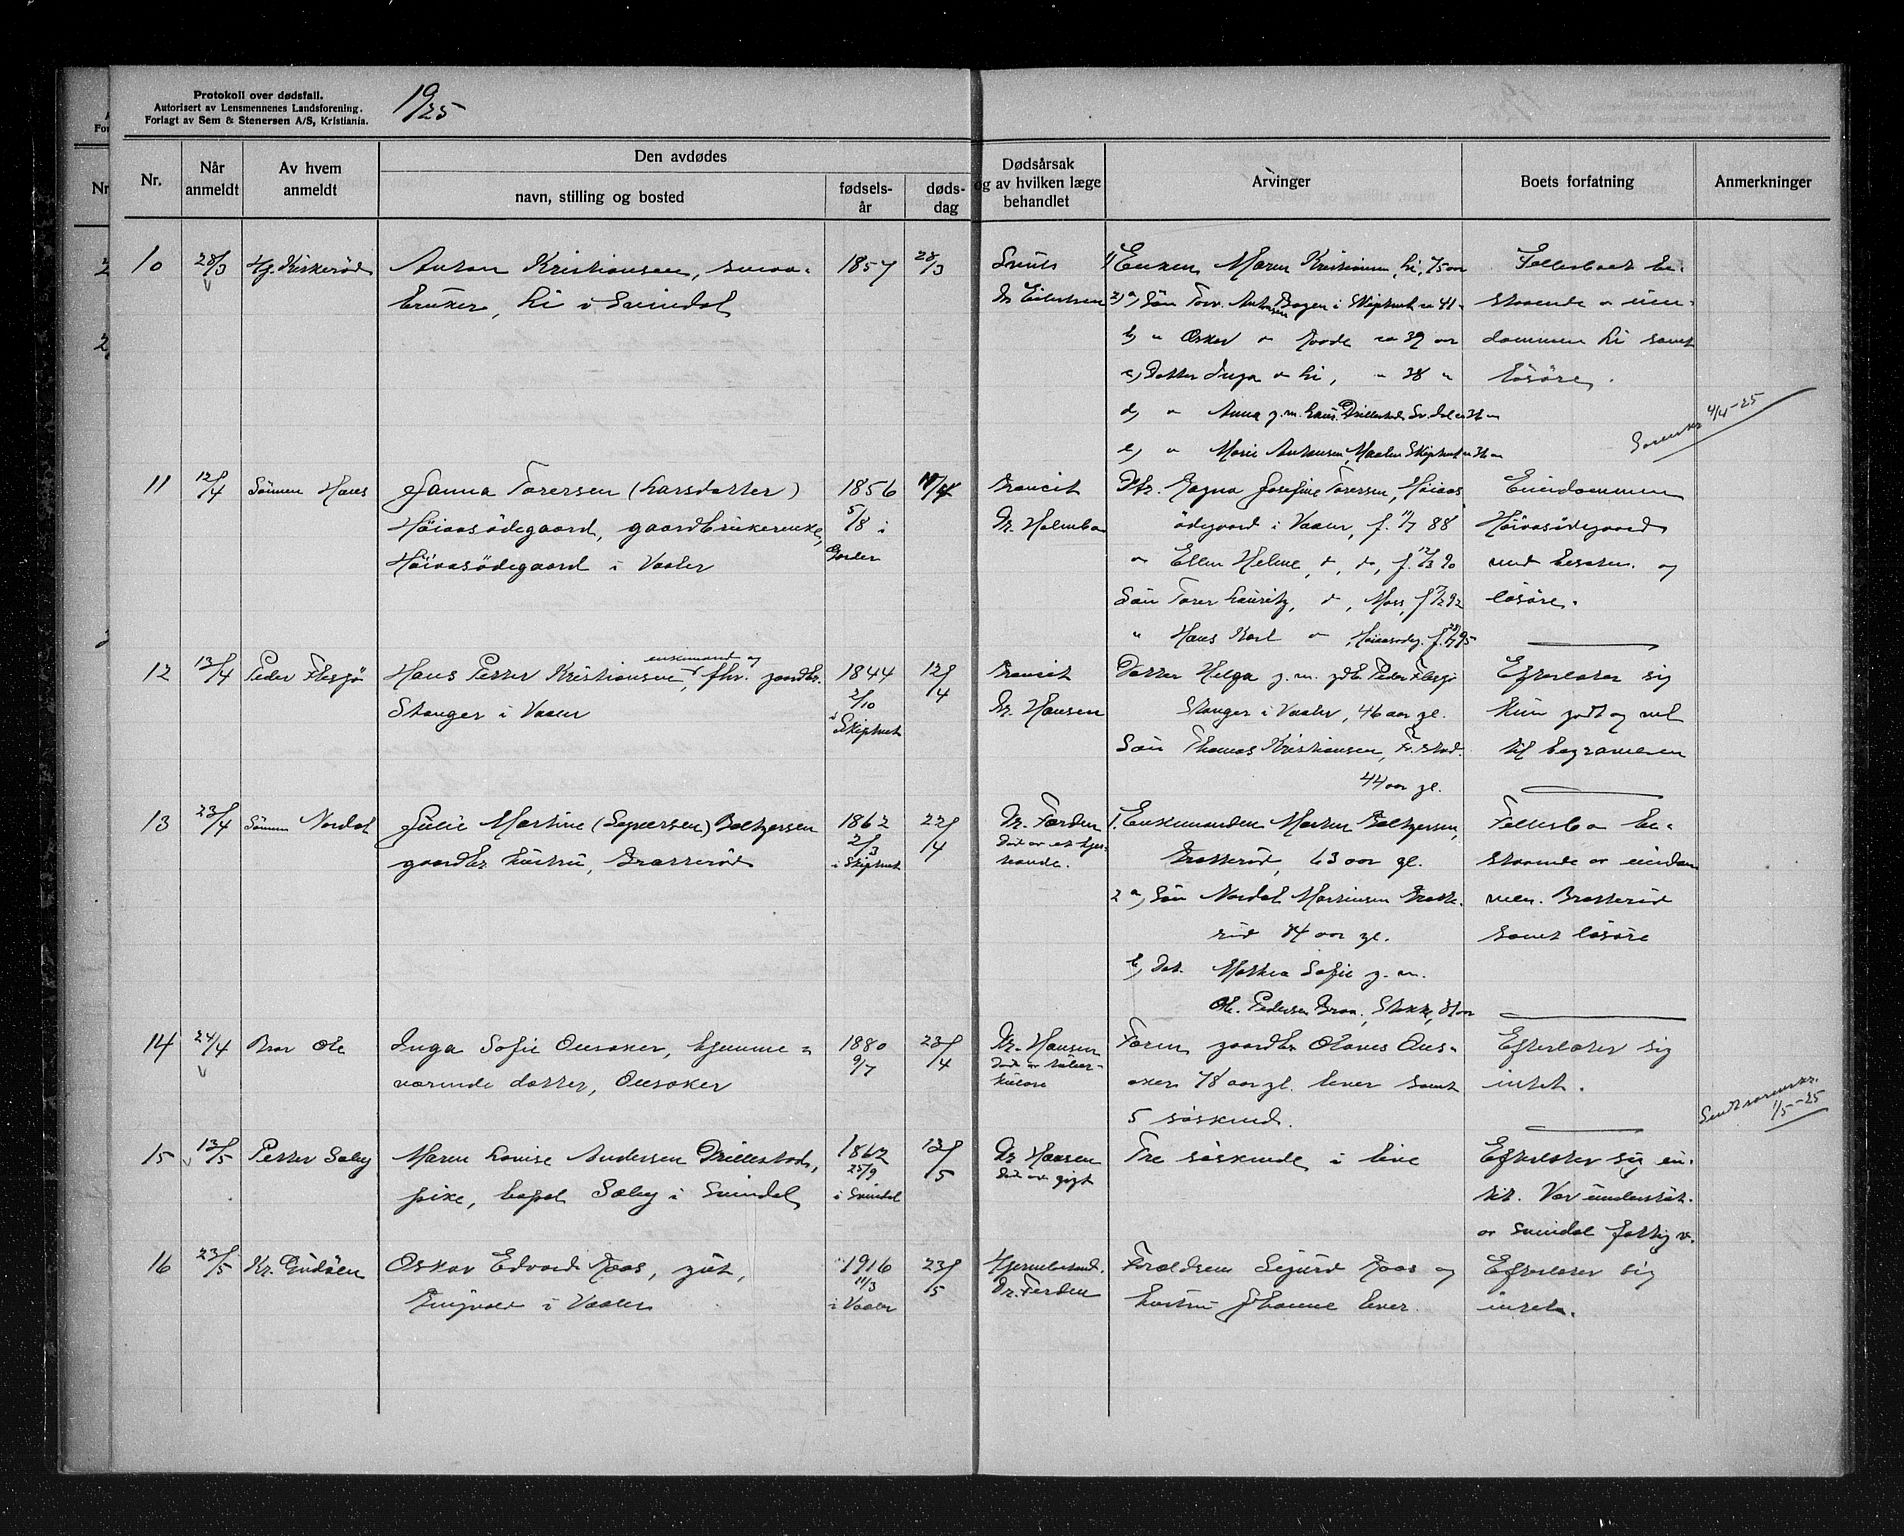 Protokoll over dødsfall.
Autorisert av Lensmennenes Landsforening.
Forlagt av Sem & Stenersen A/S, Kristiania.
19/25
Nr.
Når anmeldt
Av hvem anmeldt
Den avdødes
navn, stilling og bosted
fødsels-år
døds-dag
Dødsårsak og av hvilken læge behandlet
Arvinger
Boets forfatning
Anmerkninger
10 28/3 Hj. Kirkerød
Anton Kristiansen, smaa-
bruker, Li i Svindal
1857 28/3
Dr Eilertsen
1) Enken Maren Kristiansen, Li, 75 aar
2) a) Søn Torv. Antonsen Bogen i Skiptvet ca 41 "
b) " Oskar " Raade ca 39 aar
c) Datter Inga " Li, " 38 "
d) " Anna g.m. Laur. Drillestad Sv.dal " 36 "
e) " Marie Antonsen, Maalen Skiptvet " 36 "
Fellesboet be-
staaende av eien-
dommen Li samt
løsøre.
4/4-25
11 12/4 Sønnen Hans
Janna Torersen (Larsdatter)
Høiaasødegaard, gaardbrukerenke,
Høiaasødegaard i Vaaler
1856
5/8 i
Gaarder
11/4
Dr. Holmboe
Dtr. Ragna Josefine Torersen, Høiaas
ødegaard i Vaaler, f. 11/7 88
" Ellen Helene, d, do, f. 12/3 90
Søn Torer Lauritz, d, Moss, f 7/2 92
" Hans Karl " Høiaasødeg. f. 28/7 95
Eiendommen
Høiaasødegaard
med besetn. og
løsøre.
12 13/4 Peder Flesjø
Hans Petter Kristiansen, enkemand og fhv. gaardbr.
Stanger i Vaaler
1844
2/10
i Skiptvet
12/4
Dr. Hansen
Datter Helga g.m. gdbr Peder Flesjø
Stanger i Vaaler, 46 aar gl.
Søn Thomas Kristiansen, Fr.stad.
44 aar gl.
Efterlater sig
kun godt og vel
til begravelsen
13 23/4 Sønnen Nordal
Julie Martine (Syversen) Baltzersen
gaardbr hustru, Braatterød
1862
2/3
i Skiptvet
22/4
Dr. Førden
Død av et hjer-
1. Enkemanden Martin Baltzersen,
Bratterød, 63 aar gl.
2 a) Søn Nordal Martinsen Bratte-
rød 34 aar gl.
b) Dat. Mathea Sofie g.m.
Ole Pedersen Braa, Stokke, 31 aar
Fellesbo be-
staaende av eiendom
men. Bratterød
samt løsøre
14 24/4 Bror Ole
Inga Sofie Ousaker, hjemme-
værende datter, Ousaker
1880
9/7
23/4
Dr. Hansen
Død av tuber-
kulose
Faren gaardbr Olaves Ous-
aker 78 aar gl. lever samt
5 søskend.
Efterlater sig
intet.
Sendt sorenskr.
1/5-25
15 13/5 Petter Sæby
Maren Lovise Andersen Drillestad,
pike, bopæl Sæby i Svindal
1862
25/9
i Svindal
13/5
Dr Hansen
Død av gigt
Tre søskende i live
Efterlater sig in-
tet. Var understøt.
av Svindal fattigv.
16 23/5 Kr. Gudøen
Oskar Edvard Roos, gut,
Engvold i Vaaler
1916
11/3
i Vaaler
23/5
Hjernebetænd.
Dr. Førden
Forældrene Sigurd Roos og
hustru Johanne lever.
Efterlater sig
intet.